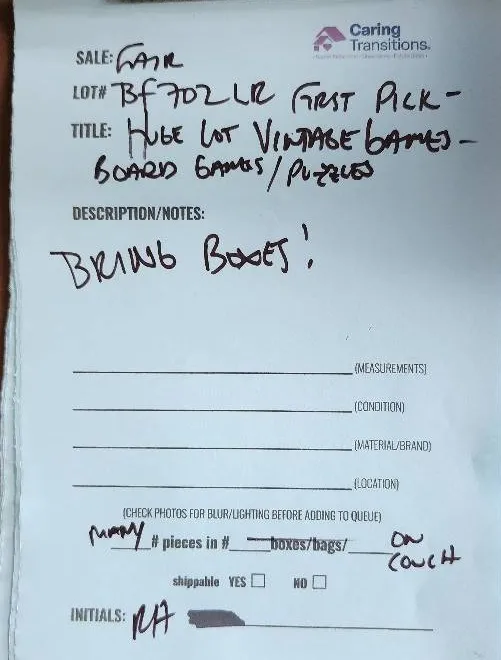 Caring
Transitions®
SALE: FAIR
LOT# Bf702LR FIRST PICK -
TITLE: HUGE LOT VINTAGE GAMES -
BOARD GAMES/PUZZLES
DESCRIPTION/NOTES:
BRING BOXES!
(MEASUREMENTS)
(CONDITION)
(MATERIAL/BRAND)
(LOCATION)
(CHECK PHOTOS FOR BLUR/LIGHTING BEFORE ADDING TO QUEUE)
MANY # pieces in # boxes/bags/ ON
COUCH
shippable YES NO
INITIALS: RH